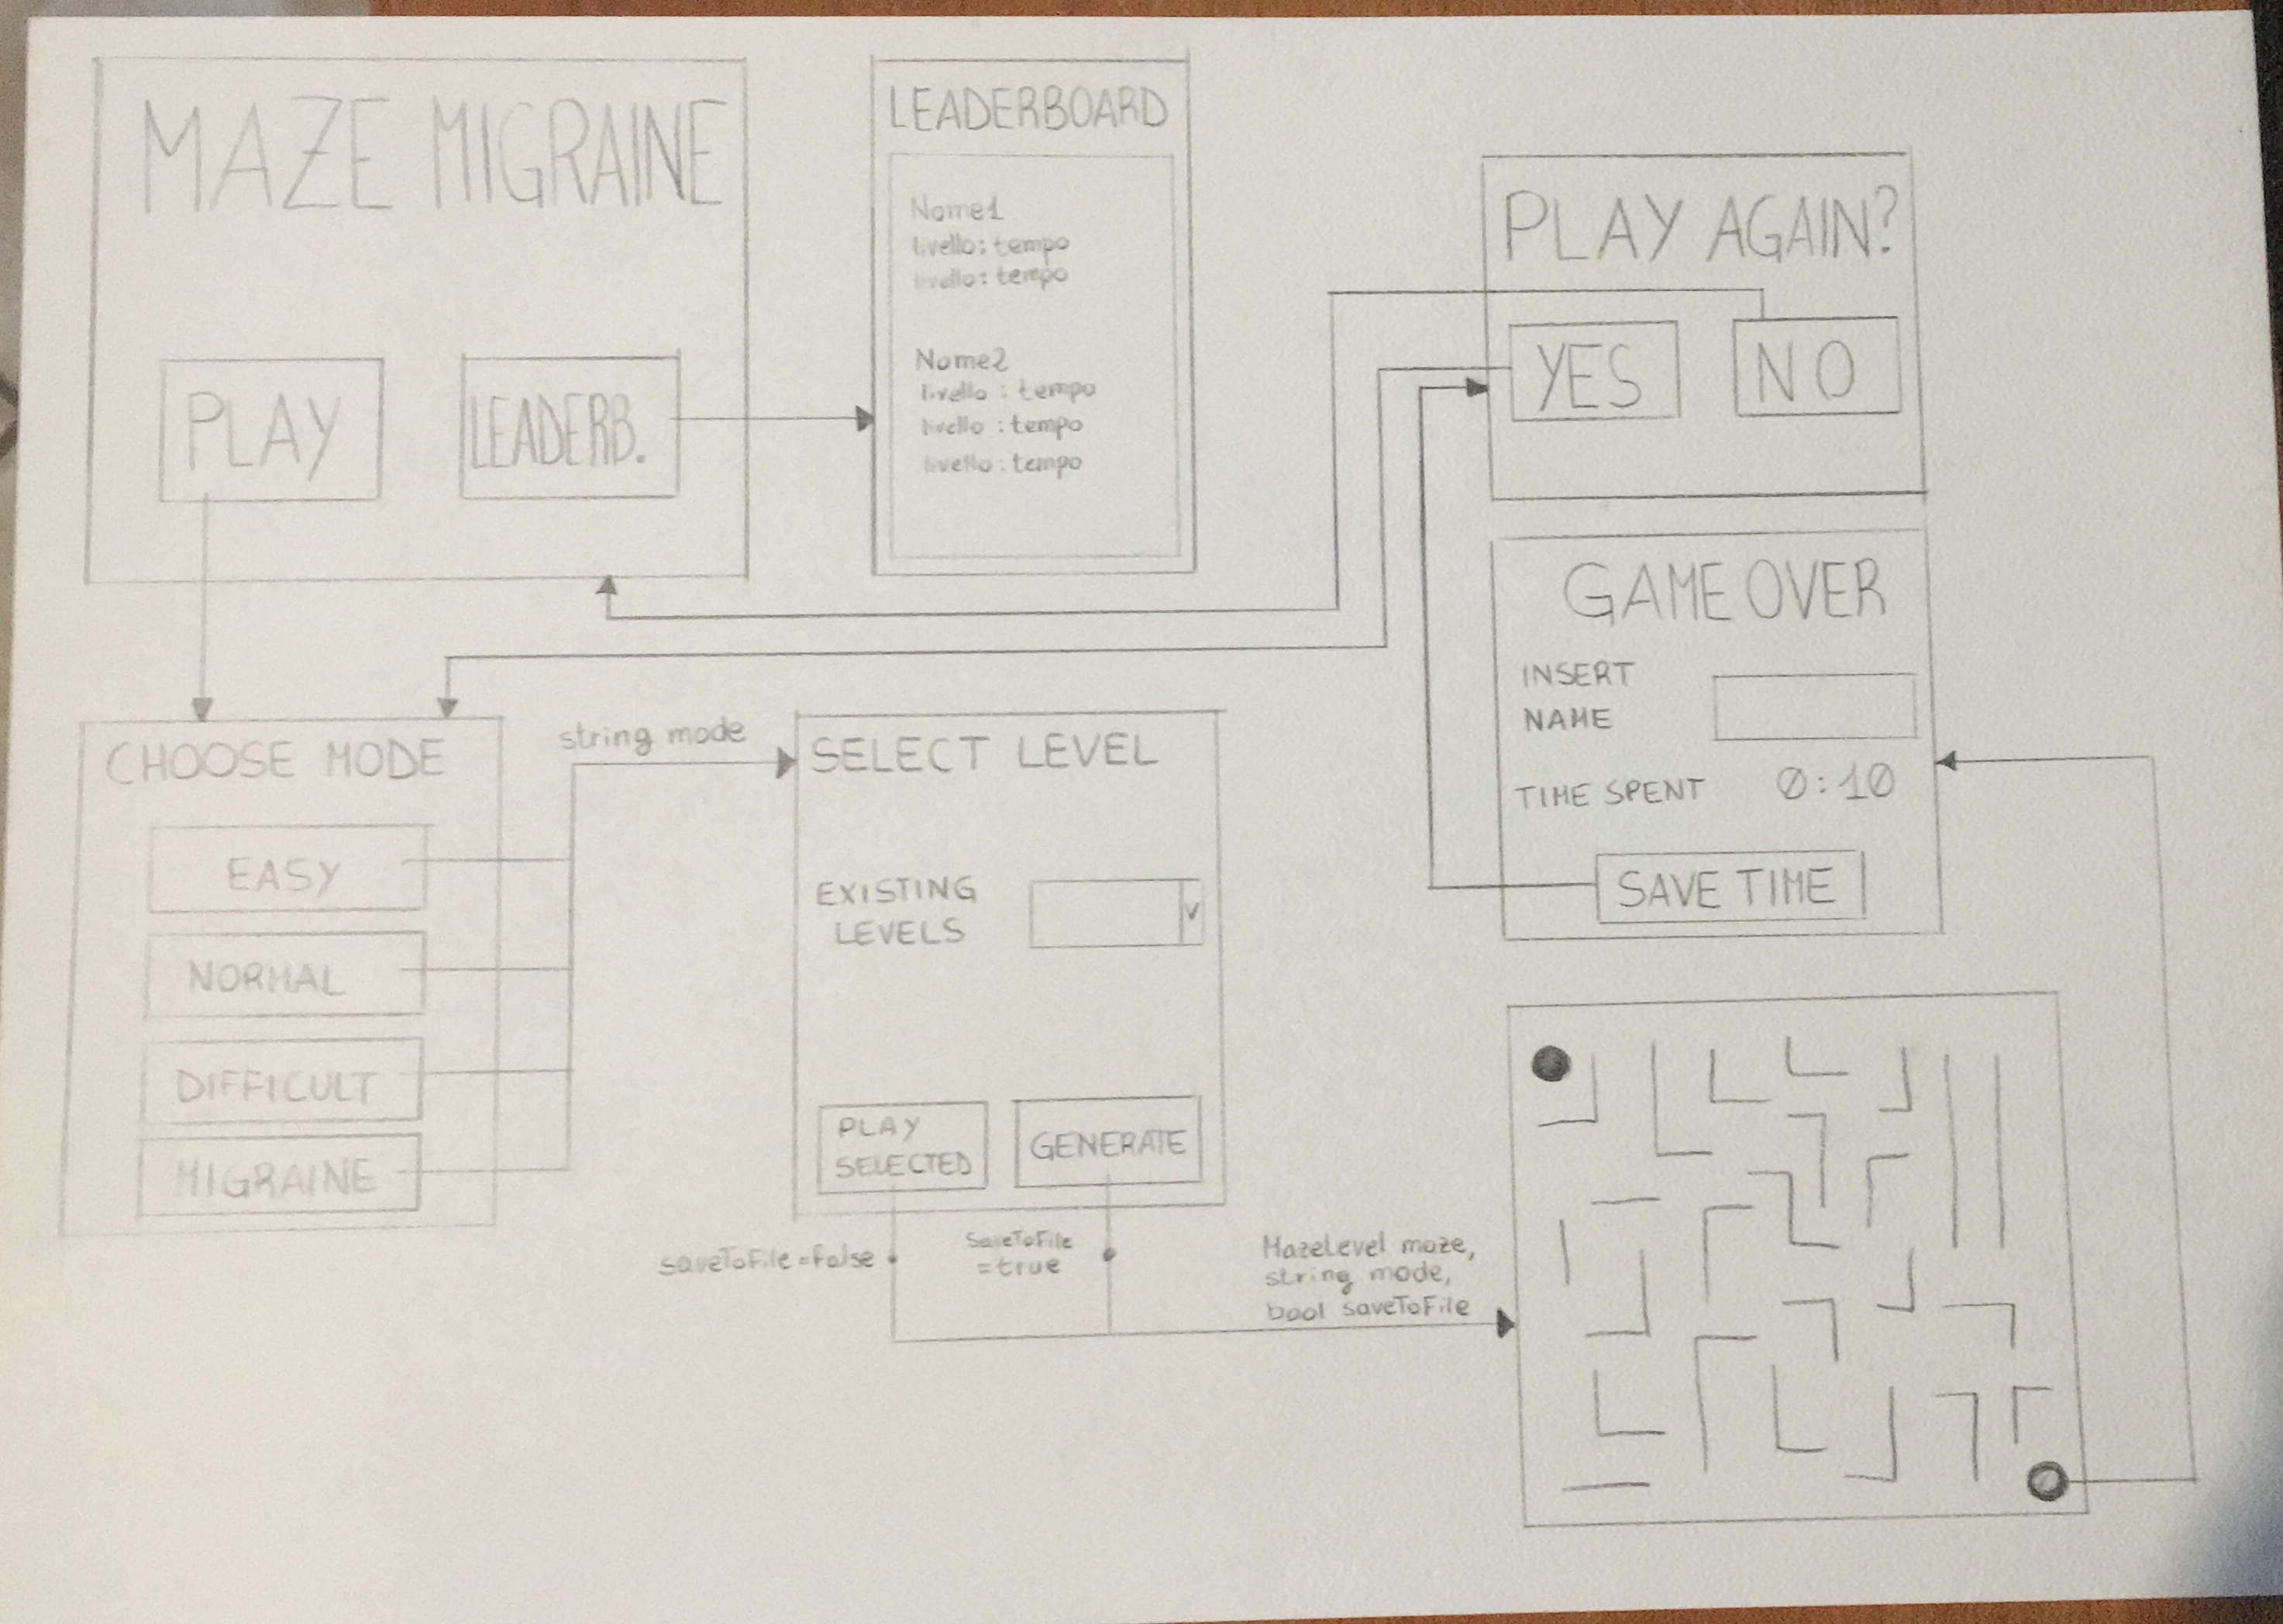 MAZE MIGRAINE
PLAY
LEADERB.
LEADERBOARD
Nome1
livello: tempo
livello: tempo
Nome2
livello : tempo
livello : tempo
livello : tempo
PLAY AGAIN?
YES
NO
GAME OVER
INSERT
NAME
TIME SPENT 0:10
SAVE TIME
CHOOSE MODE
EASY
NORMAL
DIFFICULT
MIGRAINE
string mode
SELECT LEVEL
EXISTING
LEVELS
PLAY
SELECTED
GENERATE
saveToFile=false
SaveToFile
=true
MazeLevel maze,
string mode,
bool saveToFile